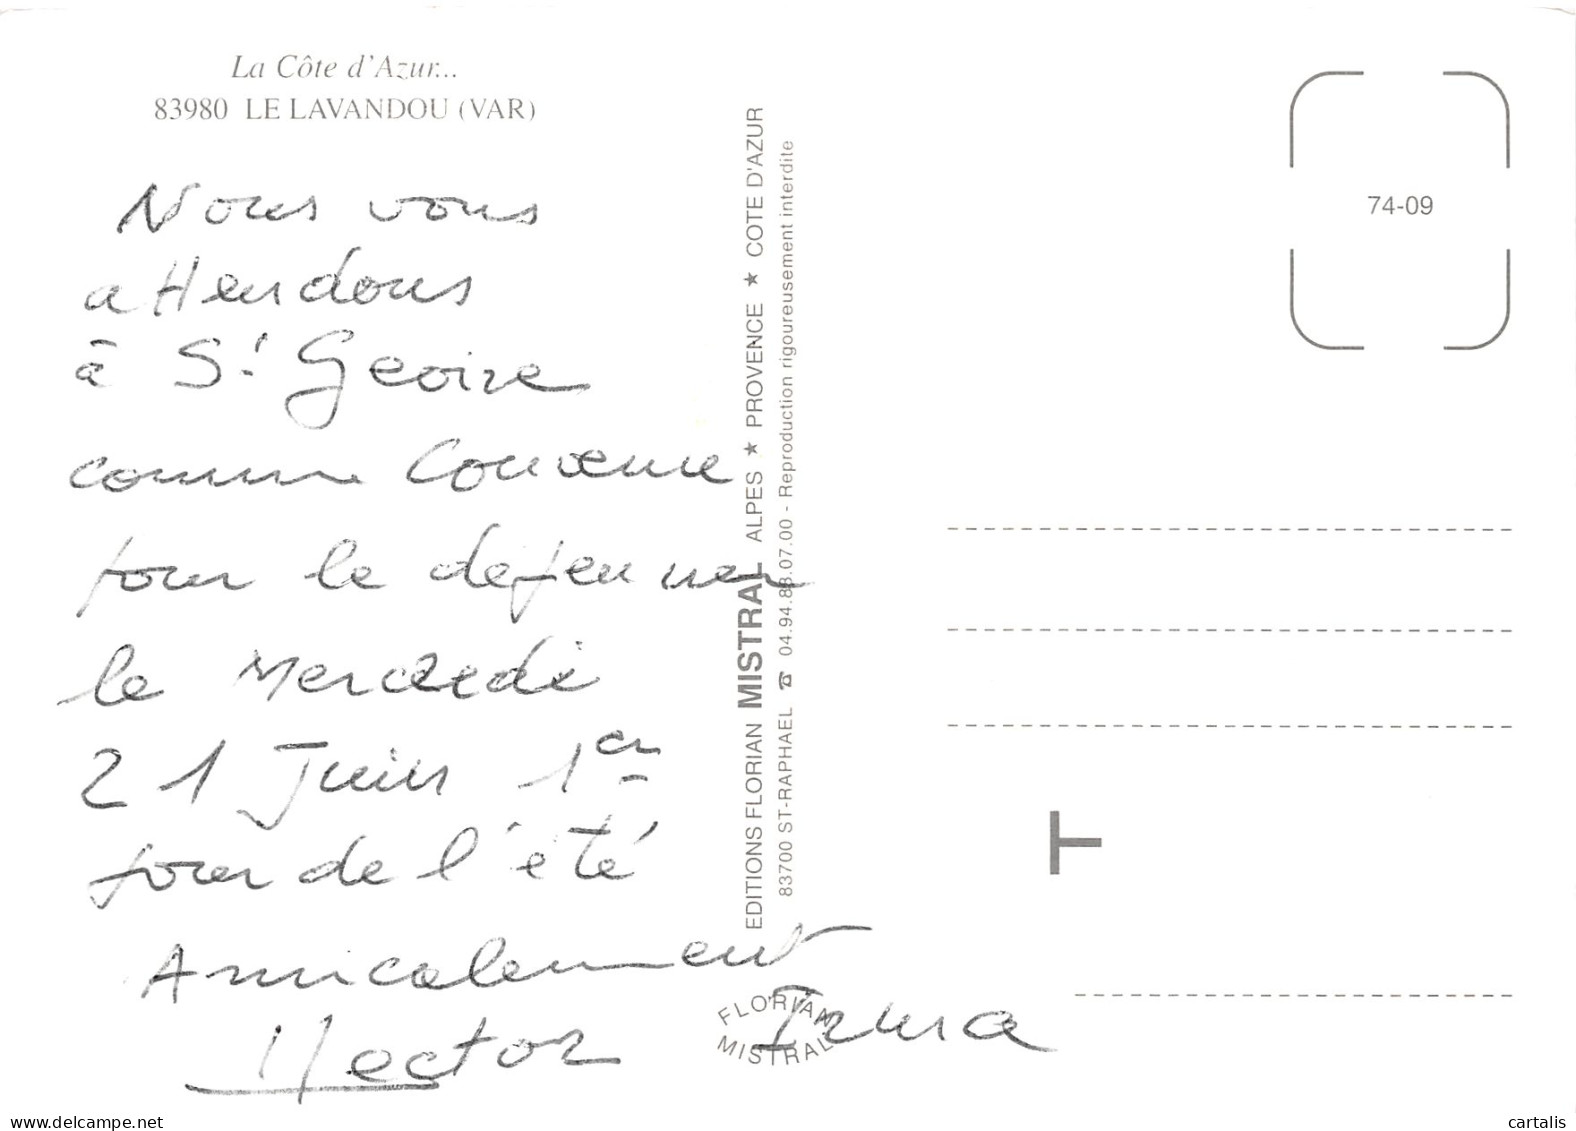 La Côte d'Azur...
83980 LE LAVANDOU (VAR)
Nous vous
attendons
à St Geoire
comme convenu
pour le dejeuner
le Mercredi
21 Juin 1er
jour de l'été
Amicalement
Hector Irma
EDITIONS FLORIAN MISTRAL ALPES ★ PROVENCE ★ COTE D'AZUR
83700 ST-RAPHAEL ☎ 04.94.83.07.00 - Reproduction rigoureusement interdite
FLORIAN
MISTRAL
74-09
T
www.delcampe.net
cartalis